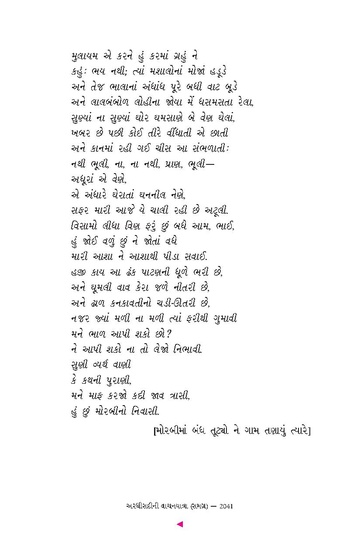 મુલાયમ એ કરને હું કરમાં ગ્રહું ને
કહું: ભય નથી; ત્યાં મશાલોનાં મોજાં હડૂડે
અને તેજ ભાલાનાં અંધાંધ પૂરે બધી વાટ બૂડે
અને લાલબંબોળ લોહીના જોયા મેં ધસમસતા રેલા,
સુણ્યાં ના સુણ્યાં ઘોર ઘમસાણે બે વેણ ઘેલાં,
ખબર છે પછી કોઈ તીરે વીંધાતી એ છાતી
અને કાનમાં રહી ગઈ ચીસ આ સંભળાતી:
નથી ભૂલી, ના, ના નથી, પ્રાણ, ભૂલી—
અધૂરાં એ વેણે,
એ અંધારે ઘેરાતાં ઘનનીલ નેણે,
સફર મારી આજે યે ચાલી રહી છે અટૂલી.
વિસામો લીધા વિણ ફરું છું બધે આમ, ભાઈ,
હું જોઈ વળું છું ને જોતાં વધે
મારી આશા ને આશાથી પીડા સવાઈ.
હજી કાય આ ઢંક પાટણની ધૂળે ભરી છે,
અને ઘૂમલી વાવ કેરા જળે નીતરી છે,
અને ઝાળ કનકાવતીનો ચડી-ઊતરી છે,
નજર જ્યાં મળી ના મળી ત્યાં ફરીથી ગુમાવી
મને ભાળ આપી શકો છો?
ને આપી શકો ના તો લેજો નિભાવી.
સુણી વ્યર્થ વાણી
કે કથની પુરાણી,
મને માફ કરજો કદી જાવ ત્રાસી,
હું છું મોરબીનો નિવાસી.
[મોરબીમાં બંધ તૂટ્યો ને ગામ તણાયું ત્યારે]
અરધીસદીની વાચનયાત્રા (સમગ્ર) — 2041